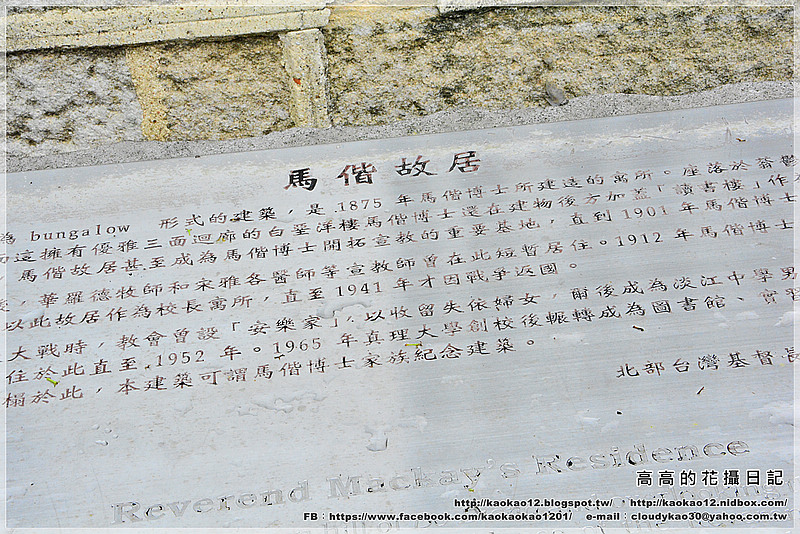 馬偕故居
為 bungalow 形式的建築，是 1875 年馬偕博士所建造的寓所。座落於蓊鬱
這擁有優雅三面迴廊的白堊洋樓馬偕博士還在建物後方加蓋「讀書樓」作
，馬偕故居甚至成為馬偕博士開拓宣教的重要基地，直到 1901 年馬偕博士
，華羅德牧師和宋雅各醫師等宣教師曾在此短暫居住。1912 年馬偕博士
以此故居作為校長寓所，直至 1941 年才因戰爭返國。
大戰時，教會曾設「安樂家」以收留失依婦女，爾後成為淡江中學男
住於此直至 1952 年。1965 年真理大學創校後輾轉成為圖書館、實習
榻於此，本建築可謂馬偕博士家族紀念建築。
北部台灣基督長
Reverend Mackay's Residence
高高的花攝日記
http://kaokao12.blogspot.tw/ ，http://kaokao12.nidbox.com/
FB：https://www.facebook.com/kaokaokao1201/ e-mail：cloudykao30@yahoo.com.tw